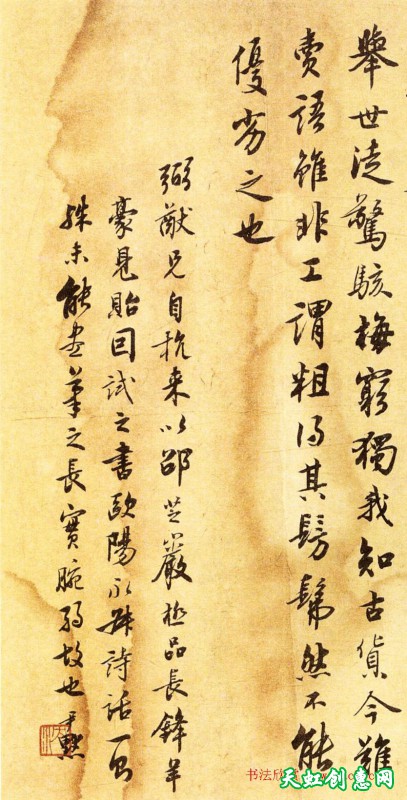 舉世徒驚駭梅窮獨我知古貨今難
賣語雖非工謂粗得其髣髴然不能
優劣之也
弼猷兄自杭来以邵芝巖極品長鋒羊
豪見貽因試之書歐陽永叔詩話一則
殊未能盡筆之長實腕弱故也 尹默
书法欣
天虹创意网